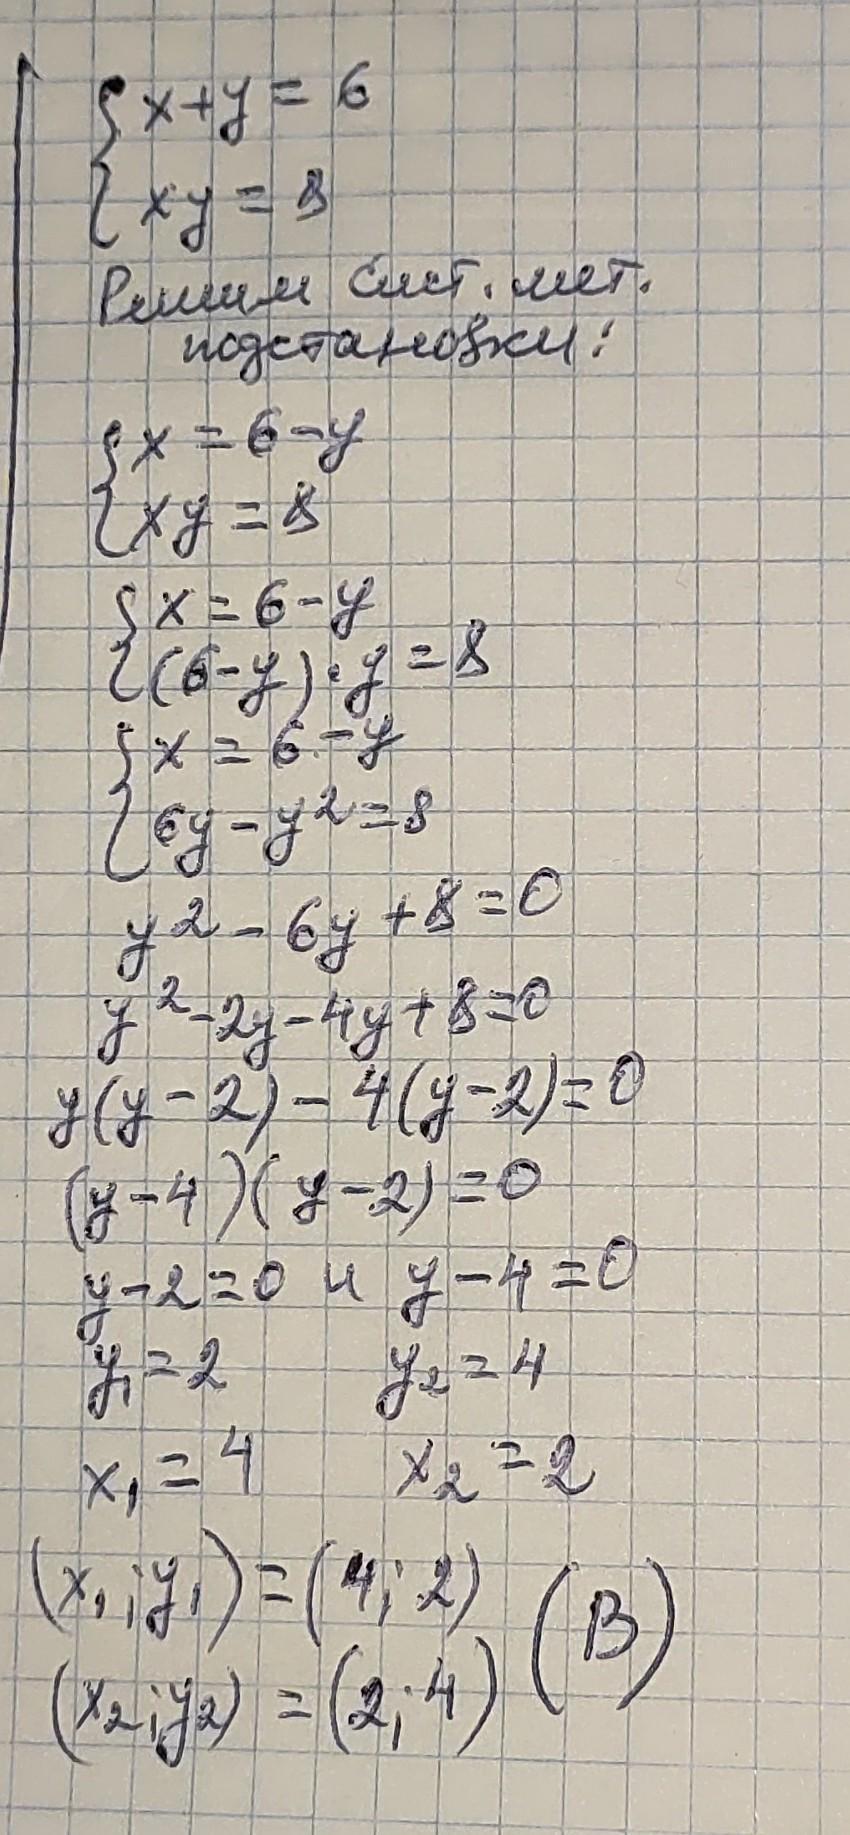 { x+y = 6
{ xy = 8
Решим сист. мет.
подстановки:
{ x = 6-y
{ xy = 8
{ x = 6-y
{ (6-y)·y = 8
{ x = 6-y
{ 6y-y²=8
y²-6y+8=0
y²-2y-4y+8=0
y(y-2)-4(y-2)=0
(y-4)(y-2)=0
y-2=0 и y-4=0
y₁=2 y₂=4
x₁=4 x₂=2
(x₁;y₁)=(4;2) (В)
(x₂;y₂)=(2;4)